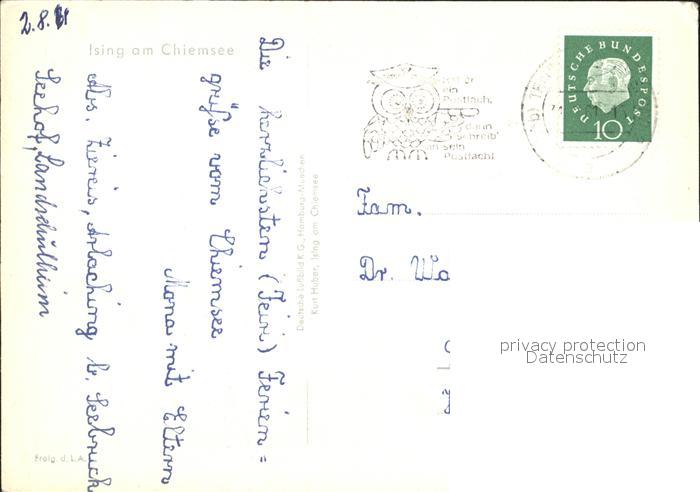 2.8.61
Ising am Chiemsee
Die herzlichsten (Feiri) Ferien=
grüße vom Chiemsee
Mona mit Eltern
Abs. Ziereis, Arlaching b. Seebruck
Seehof, Landschulheim
Deutsche Luftbild K.G., Hamburg-München
Kurt Huber, Ising am Chiemsee
Freig. d. L.A.
ein
Postfach,
dann
schreib'
sein
Postfach!
DEUTSCHE BUNDESPOST
10
Fam.
Dr. Wa
privacy protection
Datenschutz